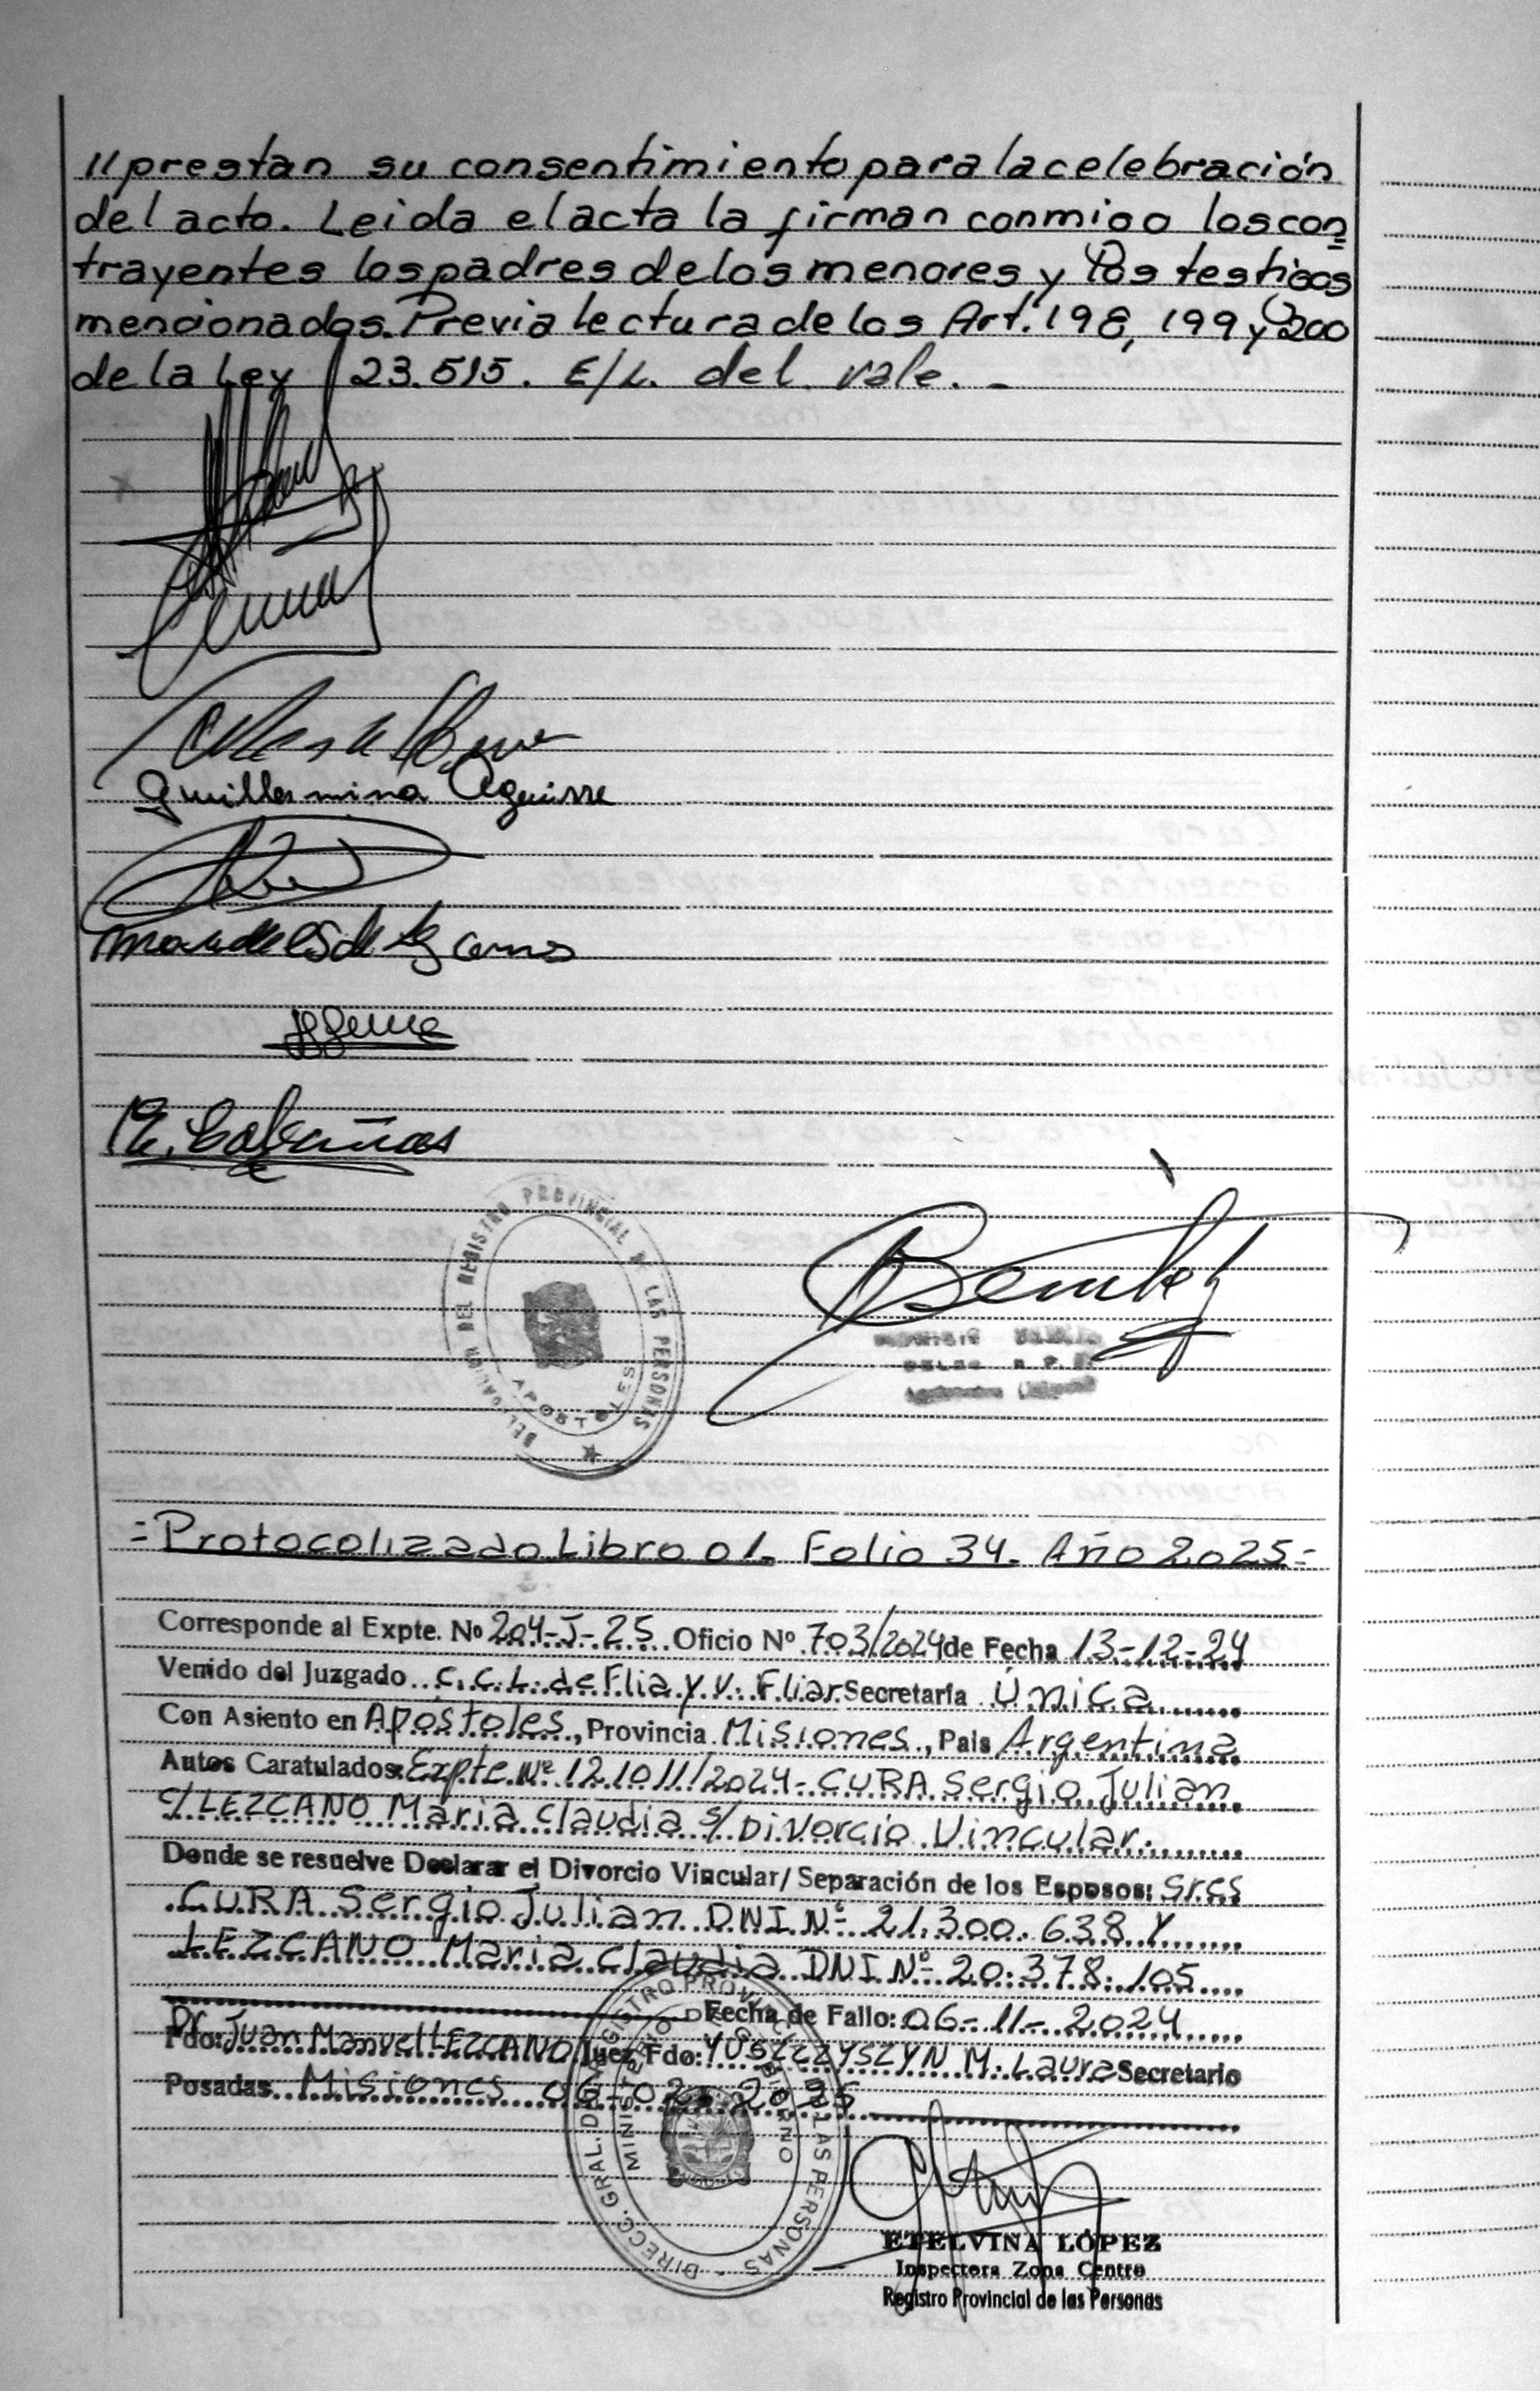 //prestan su consentimiento para la celebración
del acto. Leida el acta la firman conmigo los con=
trayentes los padres de los menores y los testigos
mencionados. Previa lectura de los Art. 198, 199 y 200
de la Ley 23.515. E/L. del. vale. -
Guillermina Aguirre
E. Cabañas
DEL REGISTRO PROVINCIAL DE LAS PERSONAS
APOSTOLES
Benitez
=Protocolizado Libro 01. Folio 34. Año 2025=
Corresponde al Expte. Nº 204-J-25 Oficio Nº 703/2024 de Fecha 13-12-24
Venido del Juzgado C.C.L. de Flia y V. Fliar Secretaría Única
Con Asiento en Apóstoles, Provincia Misiones, Pais Argentina
Autos Caratulados: Expte Nº 121011/2024- CURA Sergio Julian
c/ LEZCANO Maria Claudia s/ Divorcio Vincular.
Donde se resuelve Declarar el Divorcio Vincular/ Separación de los Esposos: Sres
CURA Sergio Julian DNI Nº 21.300.638 Y
LEZCANO Maria Claudia DNI Nº 20.378.105
Fecha de Fallo: 06-11-2024
Fdo: Dr. Juan Manuel LEZCANO Juez Fdo: YUSZCZYSZYN M. Laura Secretario
Posadas Misiones 06-02-2025
DIRECC. GRAL. DEL REGISTRO PROVINCIAL DE LAS PERSONAS
MINISTERIO DE GOBIERNO
ETELVINA LÓPEZ
Inspectora Zona Centro
Registro Provincial de las Personas